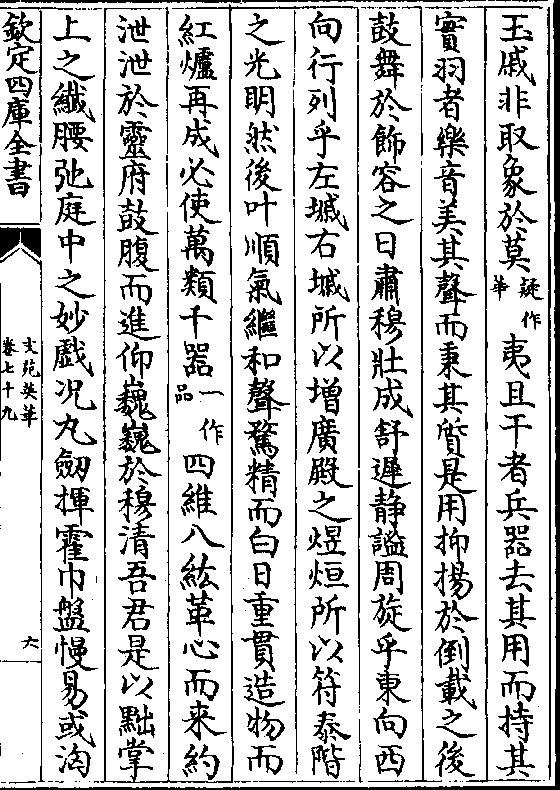 玉戚非取象於莫疑作華夷且干者兵器去其用而持其
實羽者樂音美其聲而秉其質是用抑揚於倒載之後
鼓舞於飾容之日肅穆壯成舒遲静謐周旋乎東向西
向行列乎左墄右墄所以增廣殿之煜烜所以符泰階
之光明然後叶順氣繼和聲騖精而白日重貫造物而
紅爐再成必使萬類千器一作品四維八紘革心而来約
泄泄於靈府鼓腹而進仰巍巍於穆清吾君是以黜掌
上之纖腰弛庭中之妙戲况丸劒揮霍巾盤慢易或洶
欽定四庫全書
文苑英華
卷七十九
六